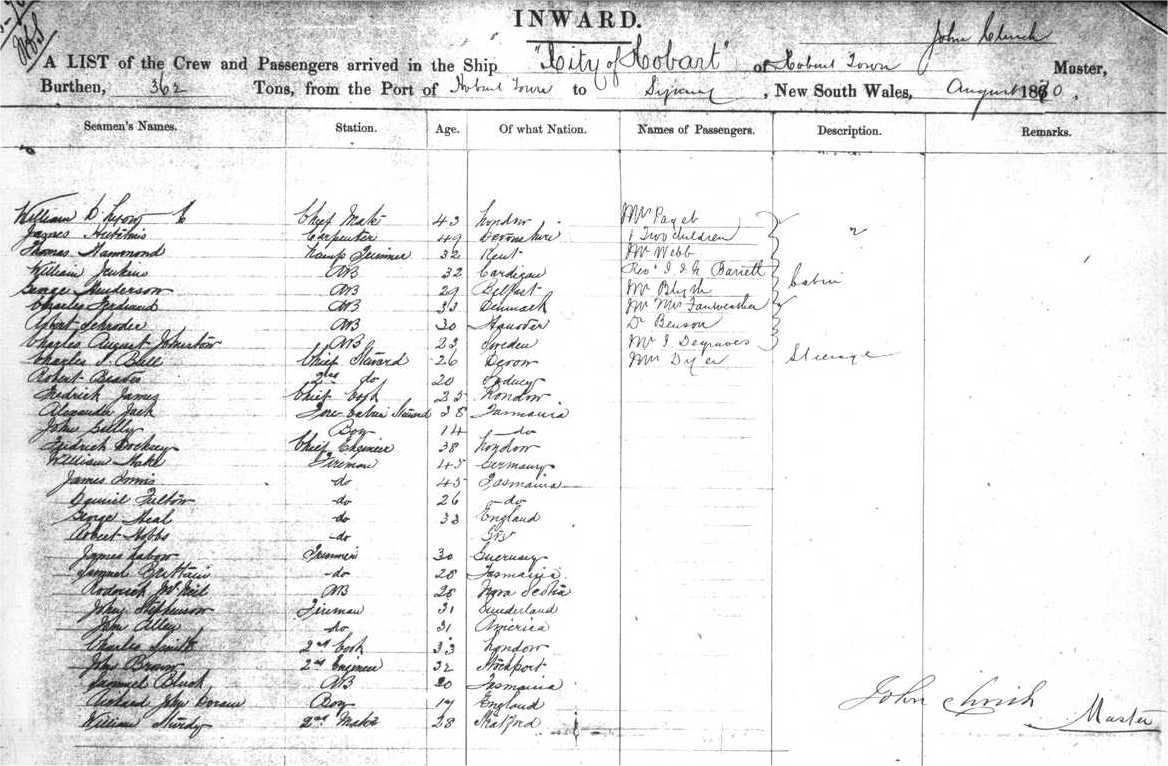 INWARD.
A LIST of the Crew and Passengers arrived in the Ship "City of Hobart" of Hobart Town John Clinch Master,
Burthen, 362 Tons, from the Port of Hobart Town to Sydney, New South Wales, August 1870.
Seamen's Names. Station. Age. Of what Nation. Names of Passengers. Description. Remarks.
William Chief Mate 43 London Mr Paget
James Carpenter 49 Devonshire & Two children
Thomas Hammond Lamp Trimmer 32 Kent Mr Webb
William Jenkins AB 32 Cardigan Revd Barrett Cabin
George Henderson AB 29 Belfast Mr Blyth
Charles AB 33 Denmark Mr Mrs Fairweather
Schroder AB 30 Hanover Dr Benson
Charles August Johnston AB 23 Sweden Mr J Degraves
Charles Bull Chief Steward 26 Devon Mr Dyer Steerage
Robert do 20 Sydney
Fredrick James Chief Cook 25 London
Alexander Jack Fore Cabin Steward 28 Tasmania
John Boy 14 do
Fredrick Chief Engineer 38 London
William Fireman 45 Germany
James do 45 Tasmania
Daniel Fulton do 26 do
George Heal do 33 England
Robert Hobbs do
James Trimmer 30 Guernsey
Samuel Brittain do 28 Tasmania
Roderick McNeil AB 28 Nova Scotia
John Stephenson Fireman 31 Sunderland
John Allen do 31 America
Charles Smith 2nd Cook 33 London
John Brown 2nd Engineer 32 Stockport
Samuel AB 20 Tasmania
Richard John Boy 17 England
William Sturdy 2nd Mate 28
John Clinch
Master